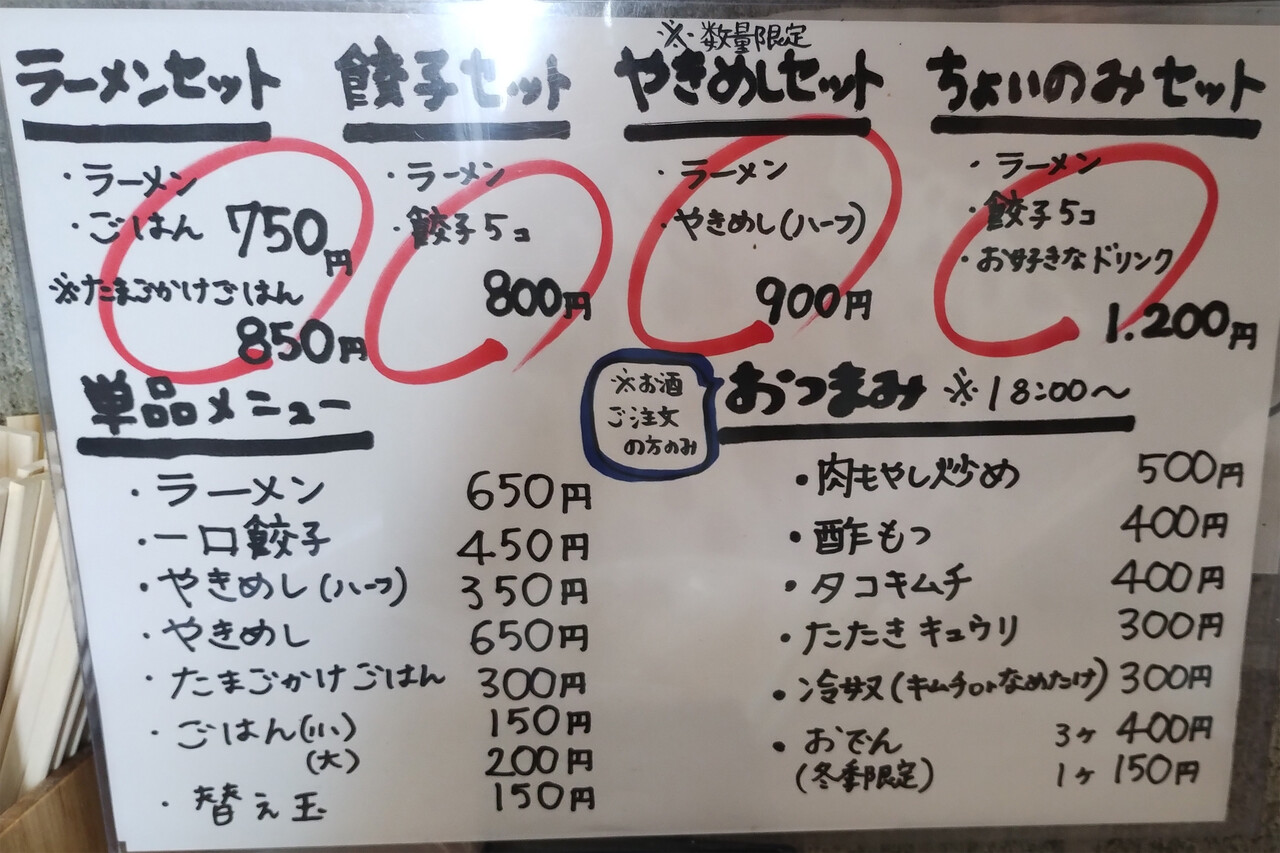 ラーメンセット
・ラーメン
・ごはん 750円
※たまごかけごはん
850円
餃子セット
・ラーメン
・餃子5コ
800円
※数量限定
やきめしセット
・ラーメン
・やきめし(ハーフ)
900円
ちょいのみセット
・ラーメン
・餃子5コ
・お好きなドリンク
1.200円
単品メニュー
・ラーメン 650円
・一口餃子 450円
・やきめし(ハーフ) 350円
・やきめし 650円
・たまごかけごはん 300円
・ごはん(小) 150円
(大) 200円
・替え玉 150円
※お酒
ご注文
の方のみ
おつまみ ※18:00～
・肉もやし炒め 500円
・酢もつ 400円
・タコキムチ 400円
・たたきキュウリ 300円
・冷奴(キムチorなめたけ) 300円
・おでん 3ヶ 400円
(冬季限定) 1ヶ 150円